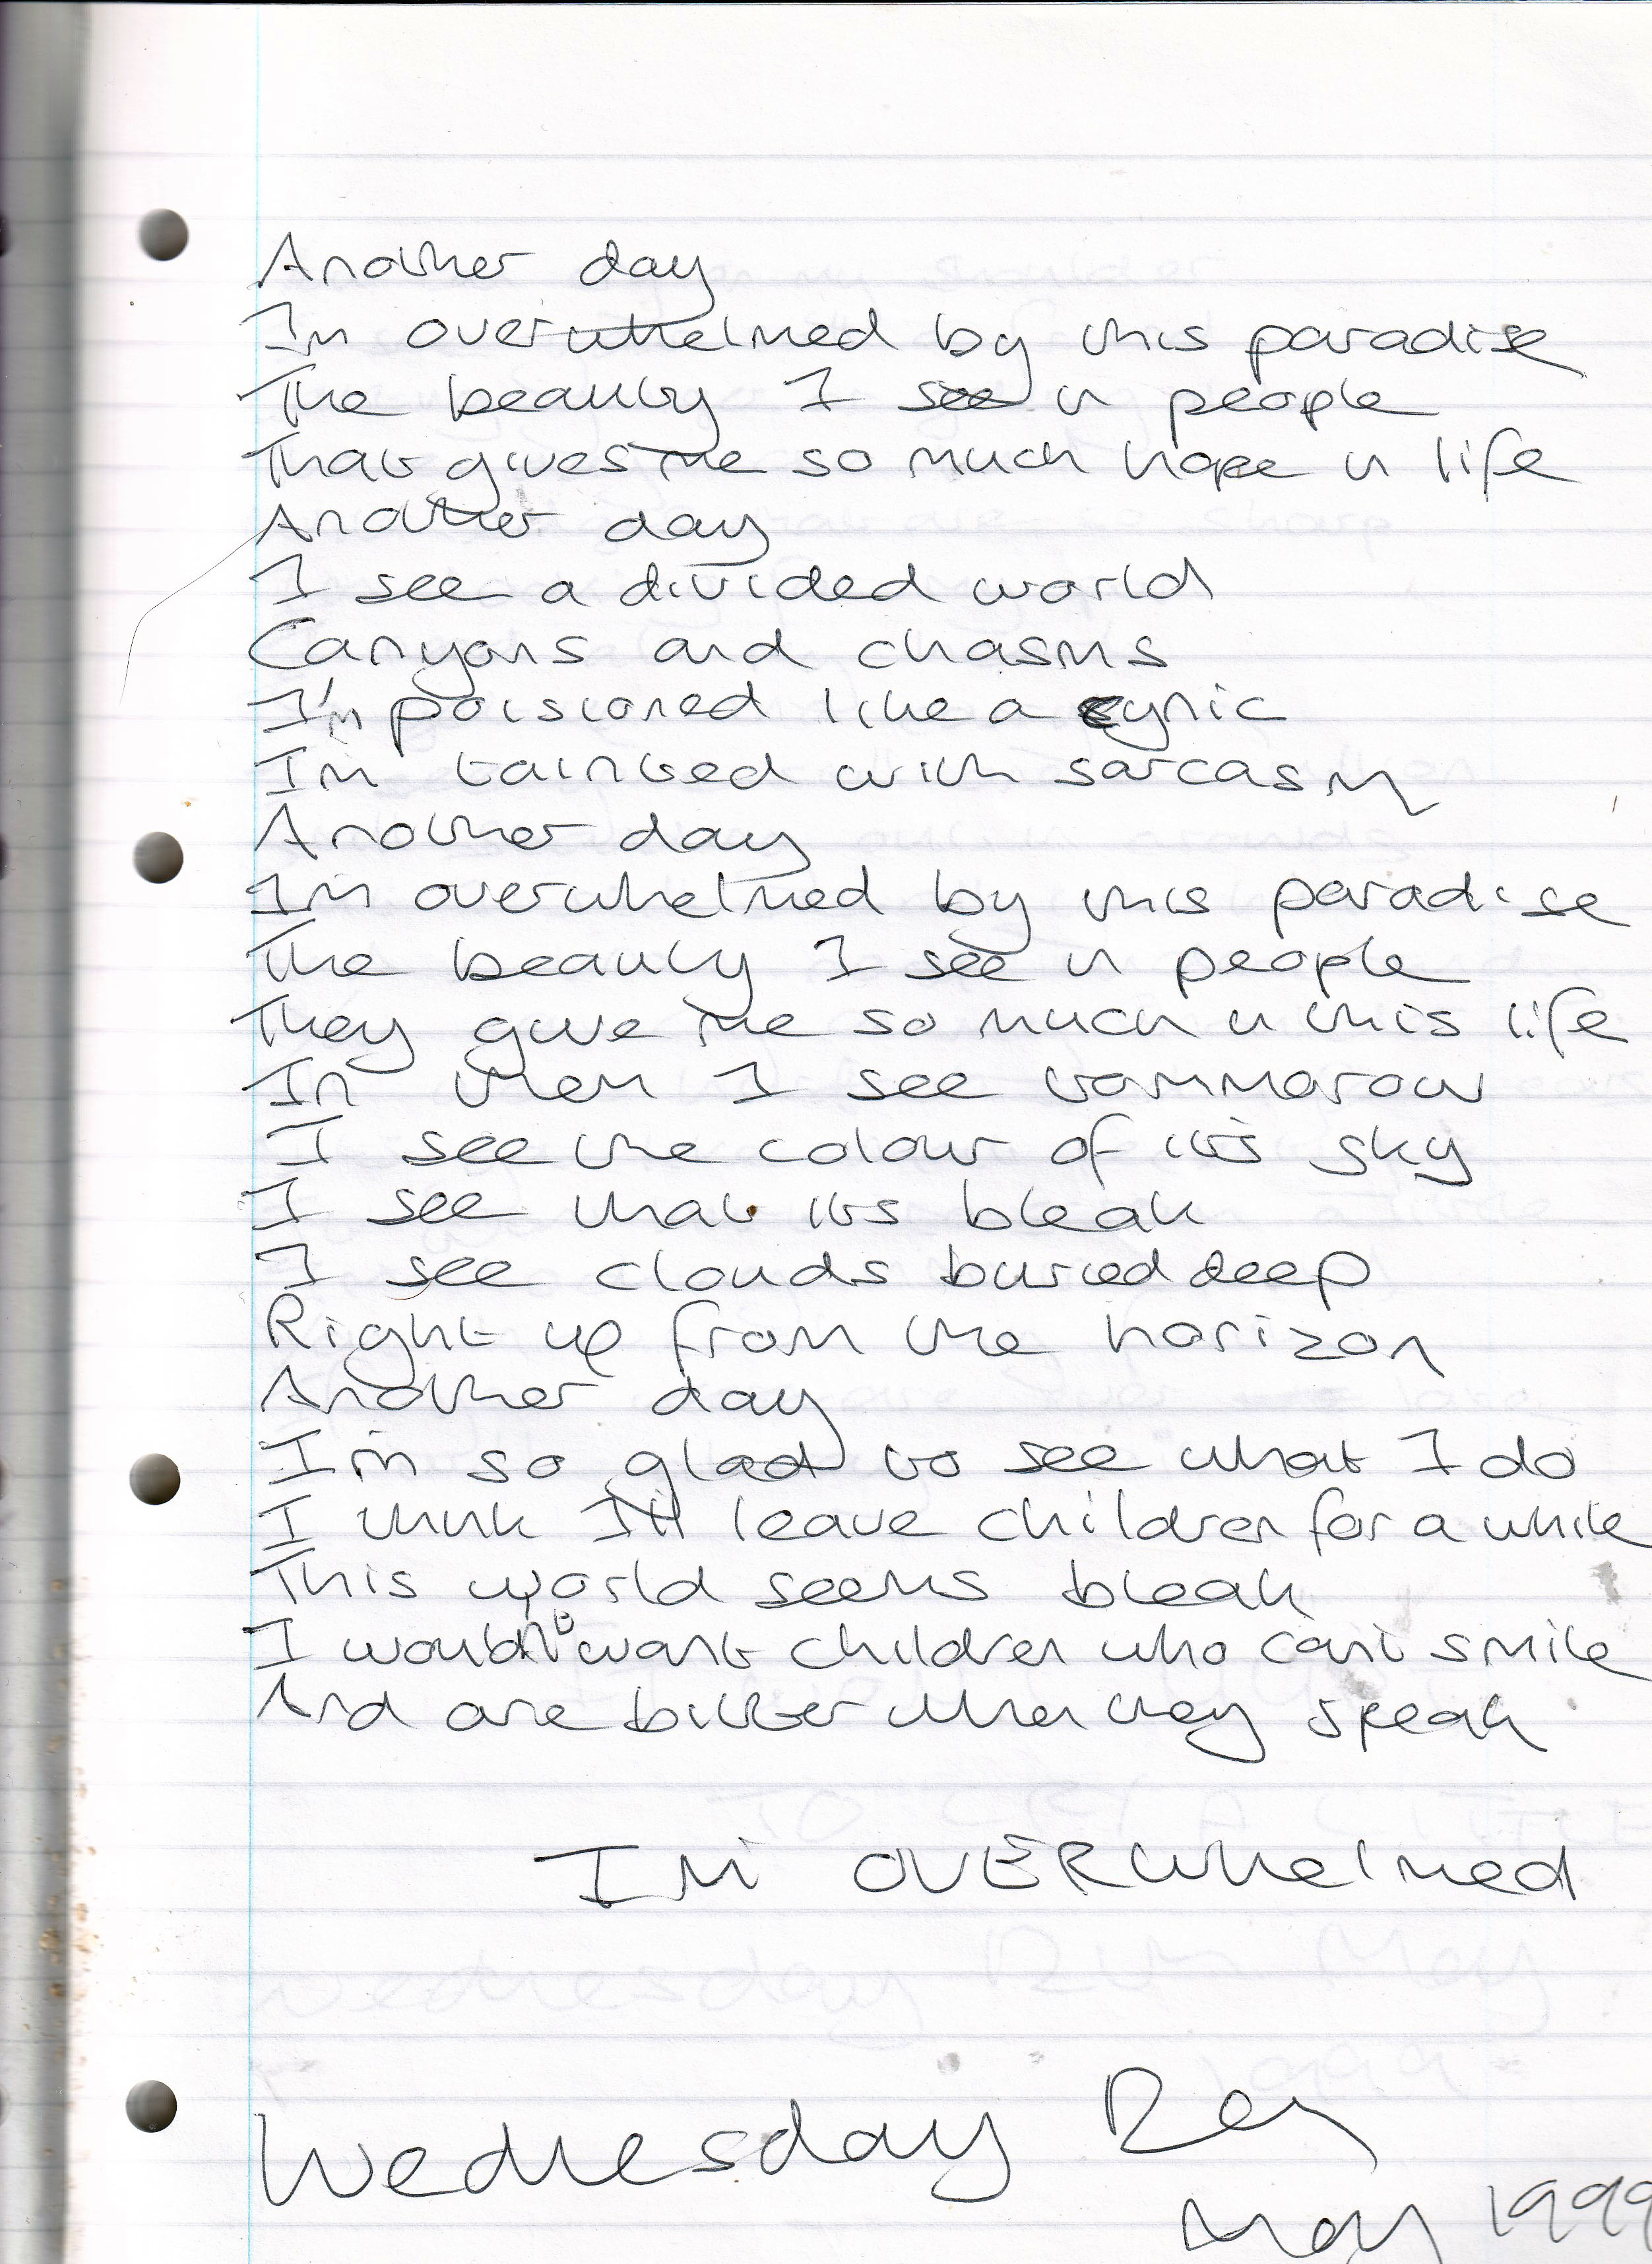 Another day
Im overwhelmed by this paradise
The beauty I see in people
That gives me so much hope in life
Another day
I see a divided world
Canyons and chasms
I'm poisioned like a cynic
Im tainted with sarcasm
Another day
Im overwhelmed by this paradise
The beauty I see in people
They give me so much in this life
In them I see tommorow
I see the colour of its sky
I see that its bleak
I see clouds buried deep
Right up from the horizon
Another day
I'm so glad to see what I do
I think I'll leave children for a while
This world seems bleak
I wouldn't want children who cant smile
And are bitter when they speak
I'M OVERwhelmed
Wednesday
May 1999